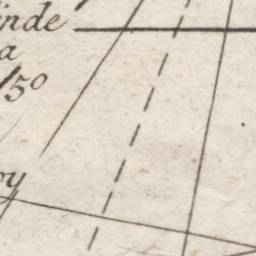 inde
a
150
oy